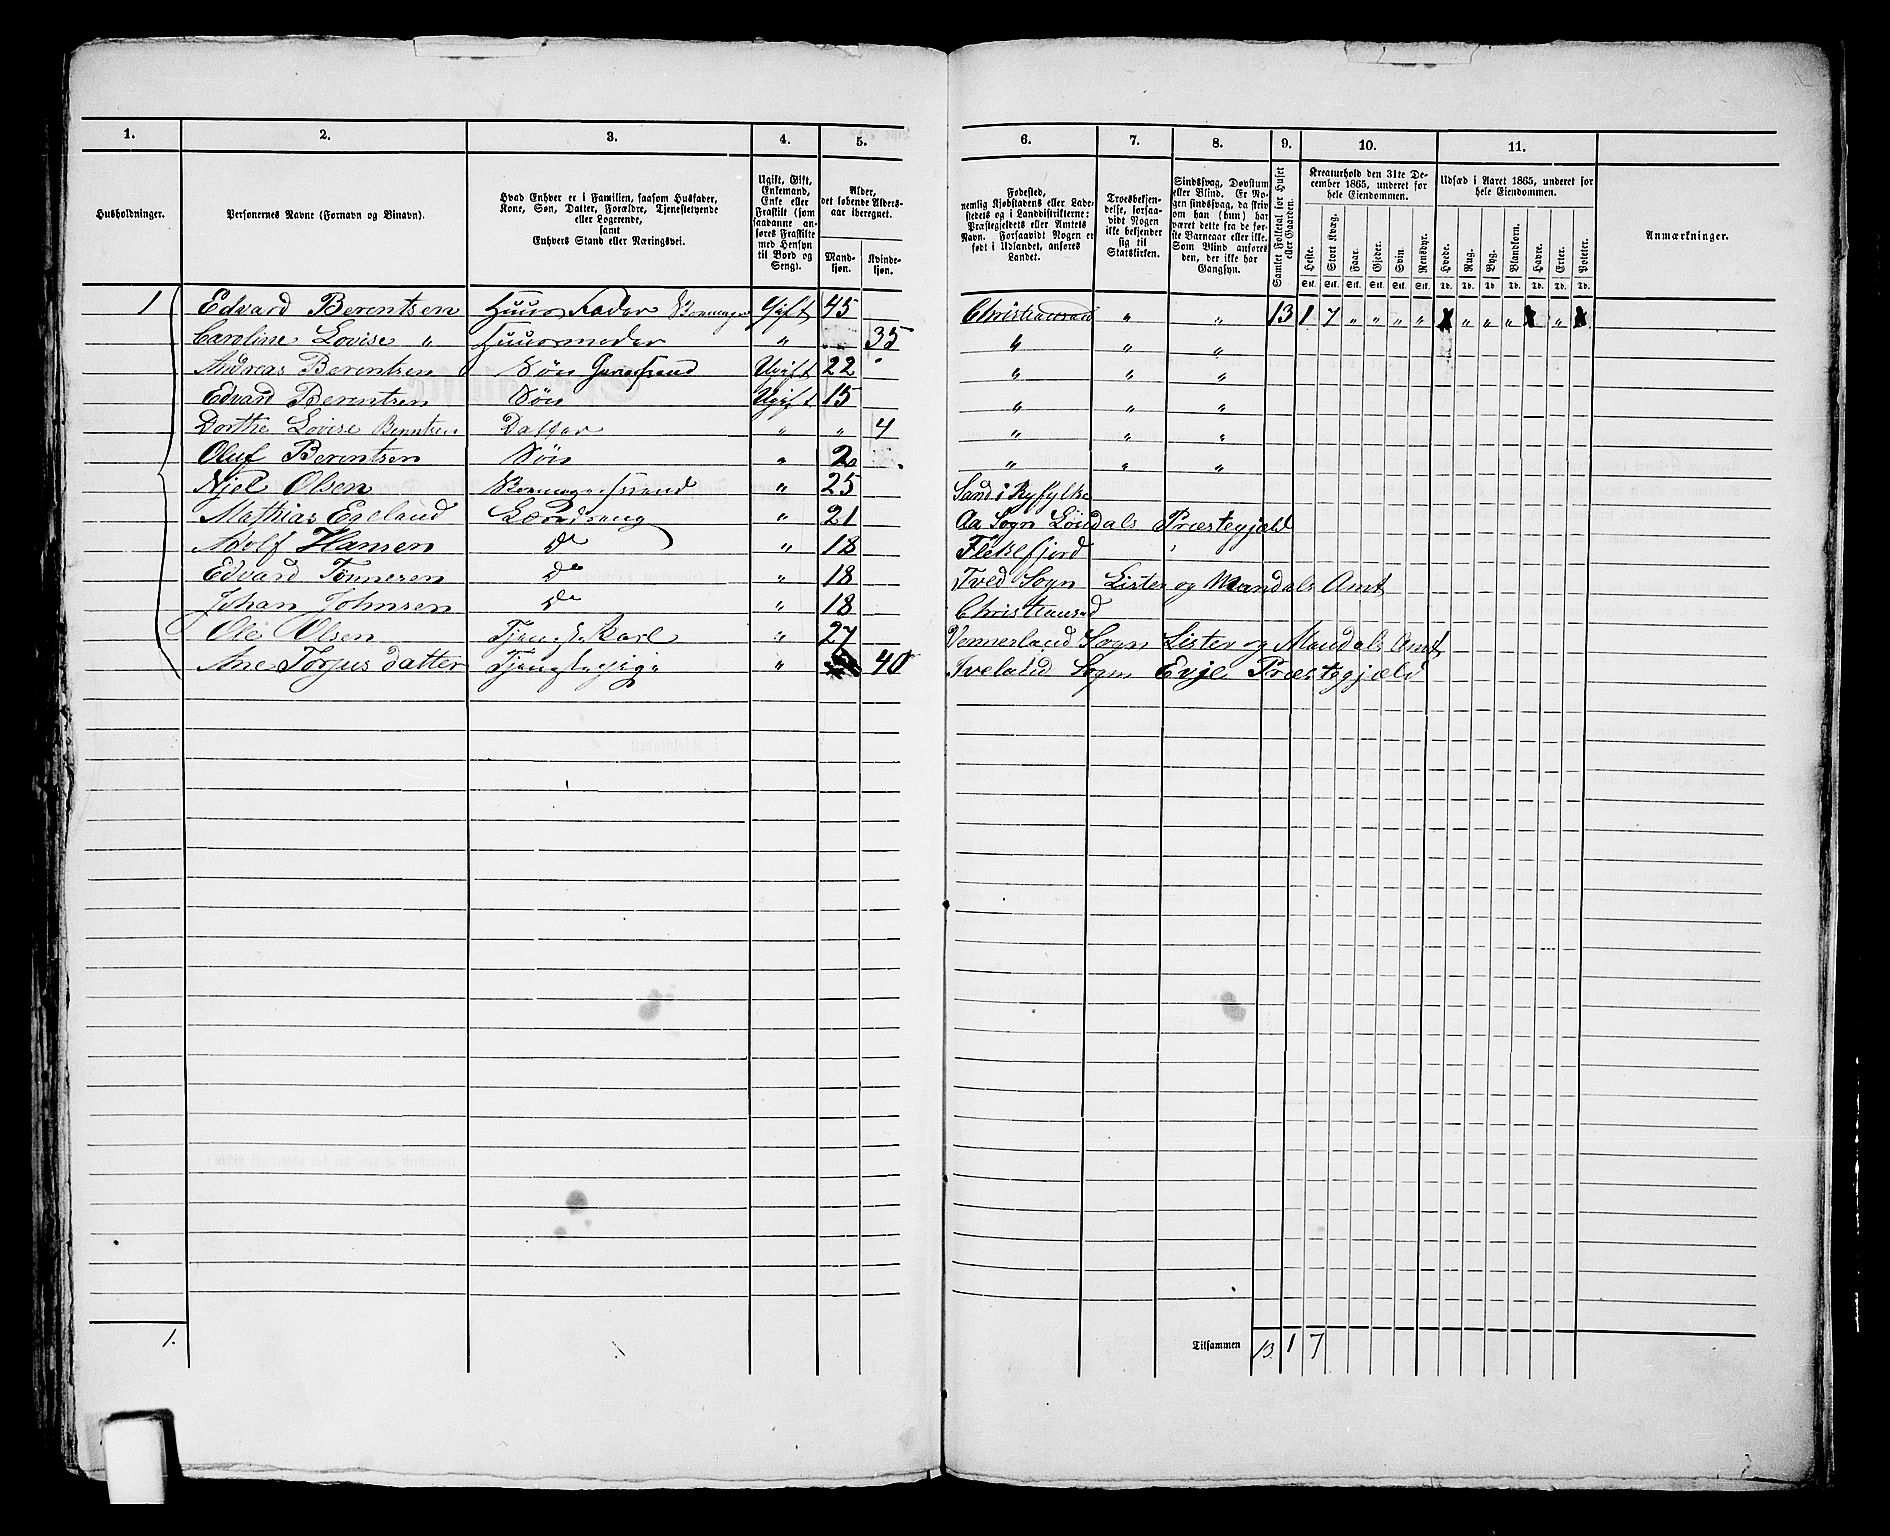 1. 2. 3. 4. 5. 6. 7. 8. 9. 10. 11.
Husholdninger.
Personernes Navne (Fornavn og Binavn).
Hvad Enhver er i Familien, saasom Husfader,
Kone, Søn, Datter, Forældre, Tjenestetyende
eller Logerende,
samt
Enhvers Stand eller Næringsvei.
Ugift, Gift,
Enkemand,
Enke eller
Fraskilt (som
saadanne an-
føres Fraskilte
med Hensyn
til Bord og
Seng).
Alder,
det løbende Alders-
aar iberegnet.
Mand-
kjøn.
Kvinde-
kjøn.
Fødested,
nemlig Kjøbstadens eller Lade-
stedets og i Landdistrikterne:
Præstegjeldets eller Amtets
Navn. Forsaavidt Nogen er
født i Udlandet, anføres
Landet.
Troesbekjen-
delse, forsaa-
vidt Nogen
ikke bekjender
sig til
Statskirken.
Sindssvag, Døvstum
eller Blind. Er No-
gen sindssvag, da skriv
om han (hun) har
været dette fra de før-
ste Barneaar eller ikke.
Som Blind anføres
den, der ikke har
Gangsyn.
Samlet Folketal for Huset
eller Gaarden.
Kreaturhold den 31te De-
cember 1865, underet for
hele Eiendommen.
Heste. Stort Kvæg. Faar. Gjeder. Svin. Rensdyr.
Stk. Stk. Stk. Stk. Stk. Stk.
Udsæd i Aaret 1865, underet for
hele Eiendommen.
Hvede. Rug. Byg. Blandkorn. Havre. Erter. Poteter.
Td. Td. Td. Td. Td. Td. Td.
Anmærkninger.
1 Edvard Berentsen Huus Fader Gift 45 Christiansand „ „ 13 1 7 „ „ „ „ „ „ „ „
Caroline Lovise „ Huusmoder „ 35 „ „ „
Andreas Berentsen Søn Ugift 22 „ „ „
Edvard Berentsen Søn Ugift 15 „ „ „
Dorthe Lovise Berntsen Datter „ „ 4 „ „ „
Oluf Berentsen Søn „ 2 „ „ „
Njel Olsen „ 25 Sand i Ryfylke
Mathias Egeland Læredreng „ 21 Aa Sogn Præstegjæld
Adolf Hansen Do „ 18 Flekefjord
Edvard Tønnesen Do „ 18 Tved Sogn Lister og Mandals Amt
Johan Johnsen Do „ 18 Christiansad
Ole Olsen Tjeneste Karl „ 27 Vennerland Sogn Lister og Mandals Amt
Ane Torjus datter Tjenestepige „ 40 Tveland Sogn Evje Præstegjæld
1.
Tilsammen 13 1 7